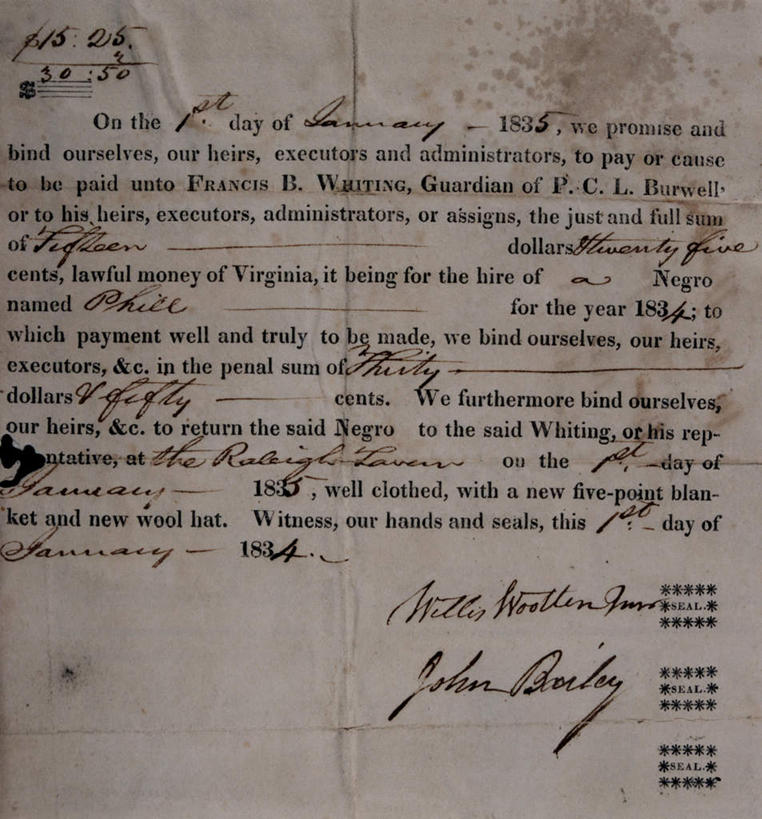 $15.25.
2
$30:50
On the 1st. day of January - 1835, we promise and
bind ourselves, our heirs, executors and administrators, to pay or cause
to be paid unto FRANCIS B. WHITING, Guardian of P. C. L. Burwell,
or to his heirs, executors, administrators, or assigns, the just and full sum
of Fifteen dollars & twenty five
cents, lawful money of Virginia, it being for the hire of a Negro
named Phill for the year 1834; to
which payment well and truly to be made, we bind ourselves, our heirs,
executors, &c. in the penal sum of Thirty
dollars & fifty cents. We furthermore bind ourselves,
our heirs, &c. to return the said Negro to the said Whiting, or his rep-
ntative, at the Raleigh Tavern on the 1st. day of
January - 1835, well clothed, with a new five-point blan-
ket and new wool hat. Witness, our hands and seals, this 1st. day of
January - 1834.
Willis Wootten Junr
*****
*SEAL.*
*****
John
*****
*SEAL.*
*****
*****
*SEAL.*
*****